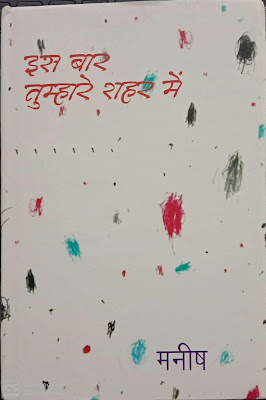 इस बार
तुम्हारे शहर में
मनीष